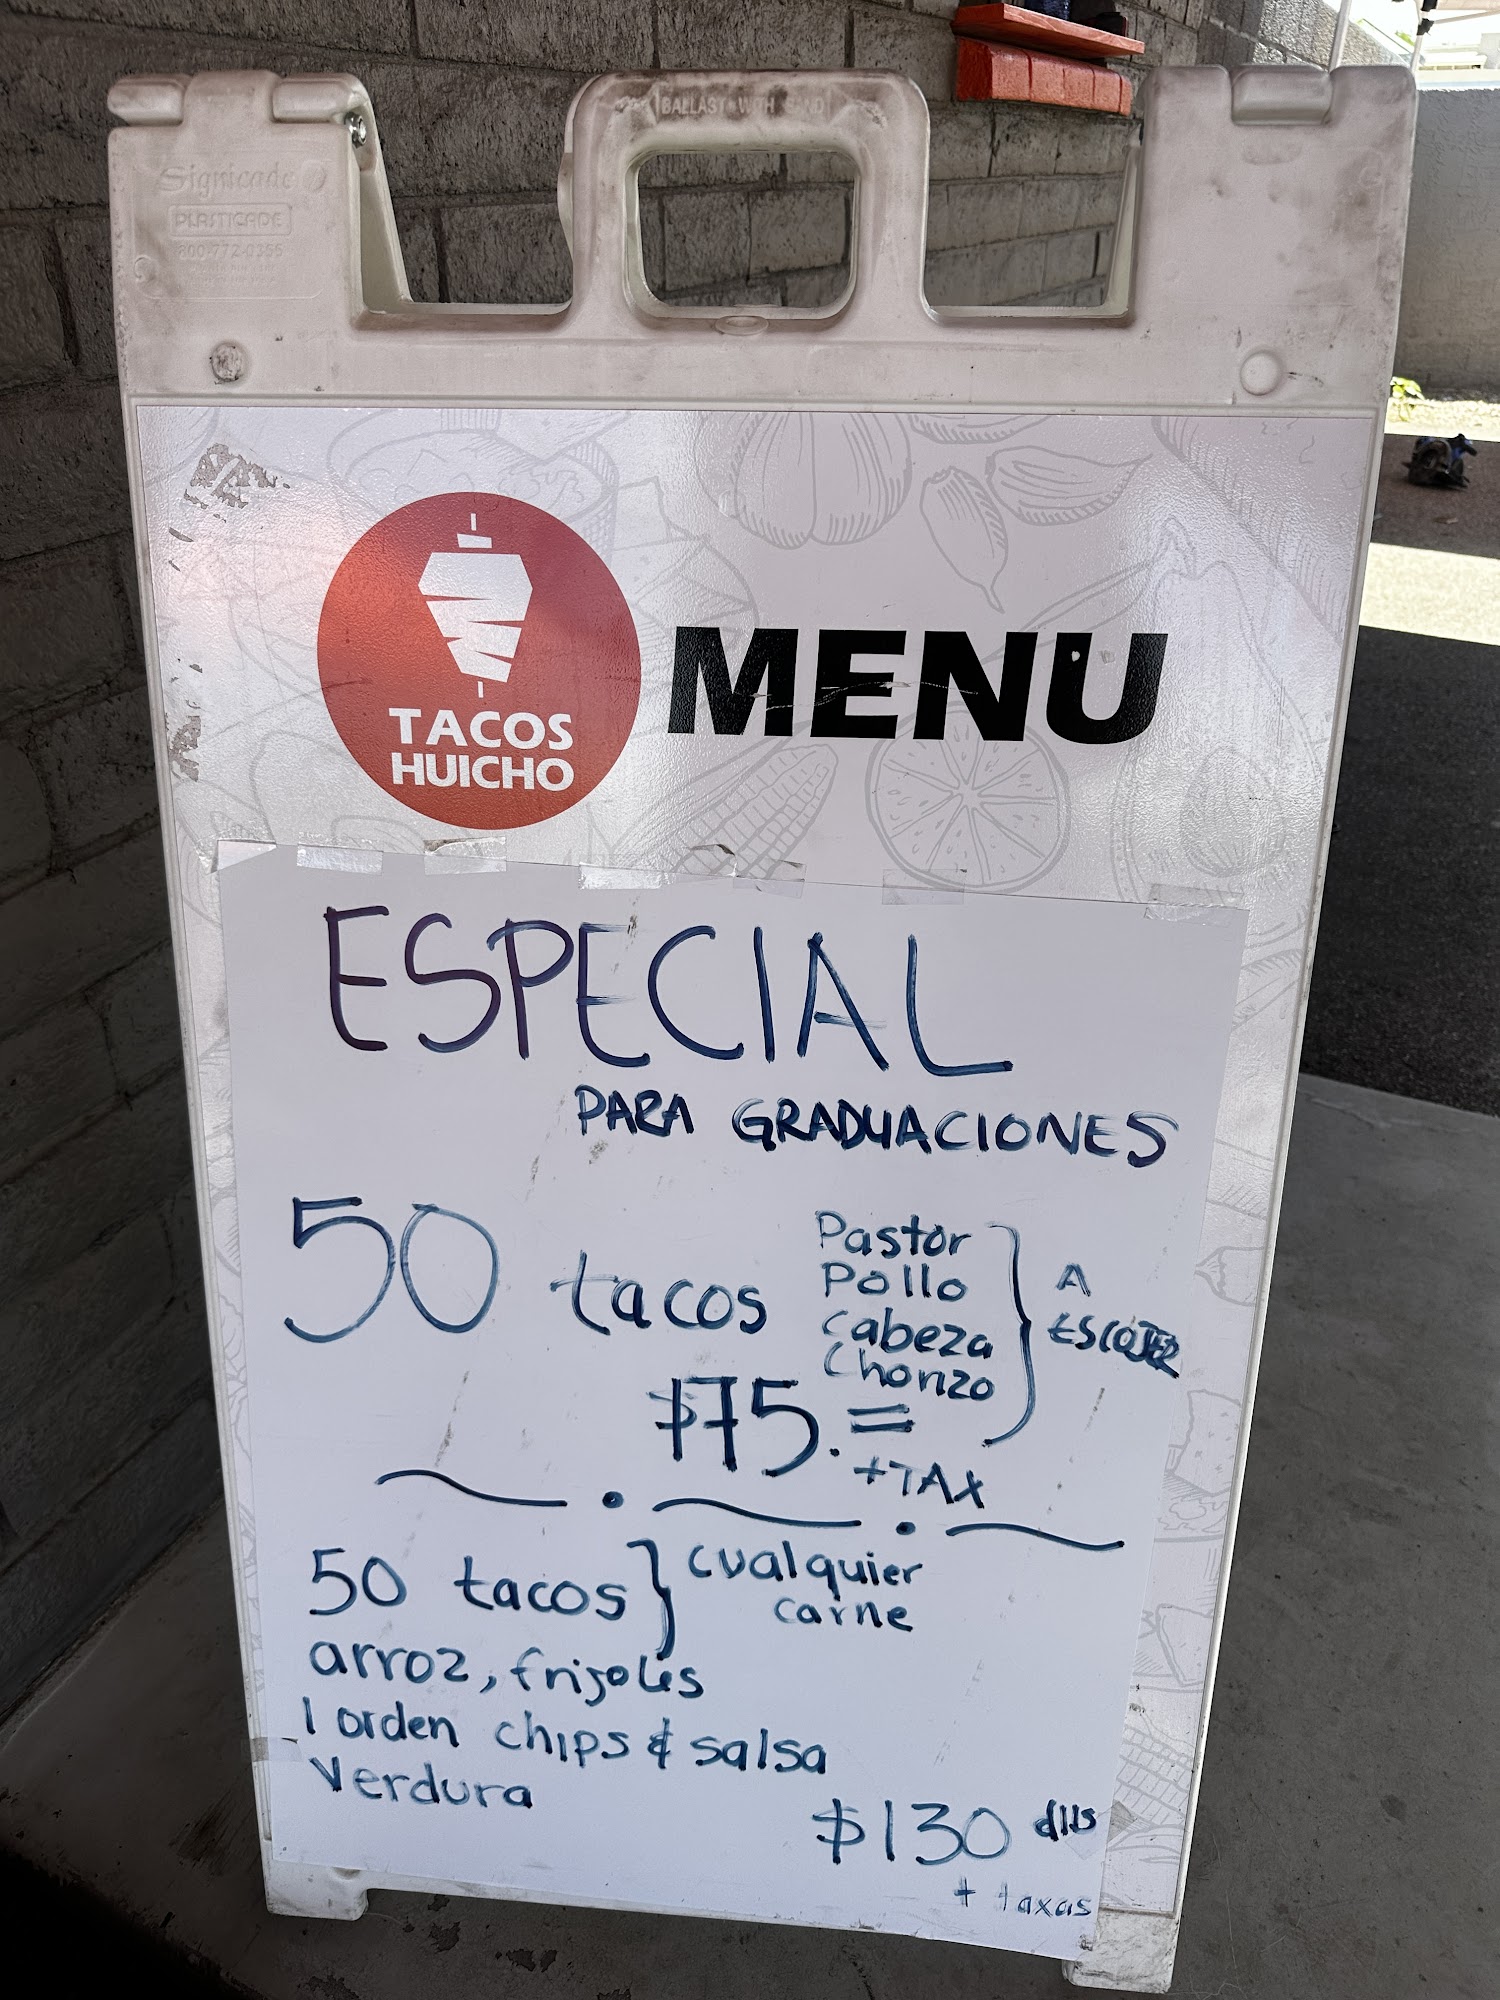 BALLAST WITH SAND
Signicade
PLASTICADE
800-772-0355
TACOS
HUICHO
MENU
ESPECIAL
PARA GRADUACIONES
50 tacos
Pastor
Pollo
Cabeza
Chorizo
A
ESCOJER
$75.=
+TAX
50 tacos } cualquier
carne
arroz, frijoles
1 orden chips & salsa
Verdura
$130 dlls
+ taxas